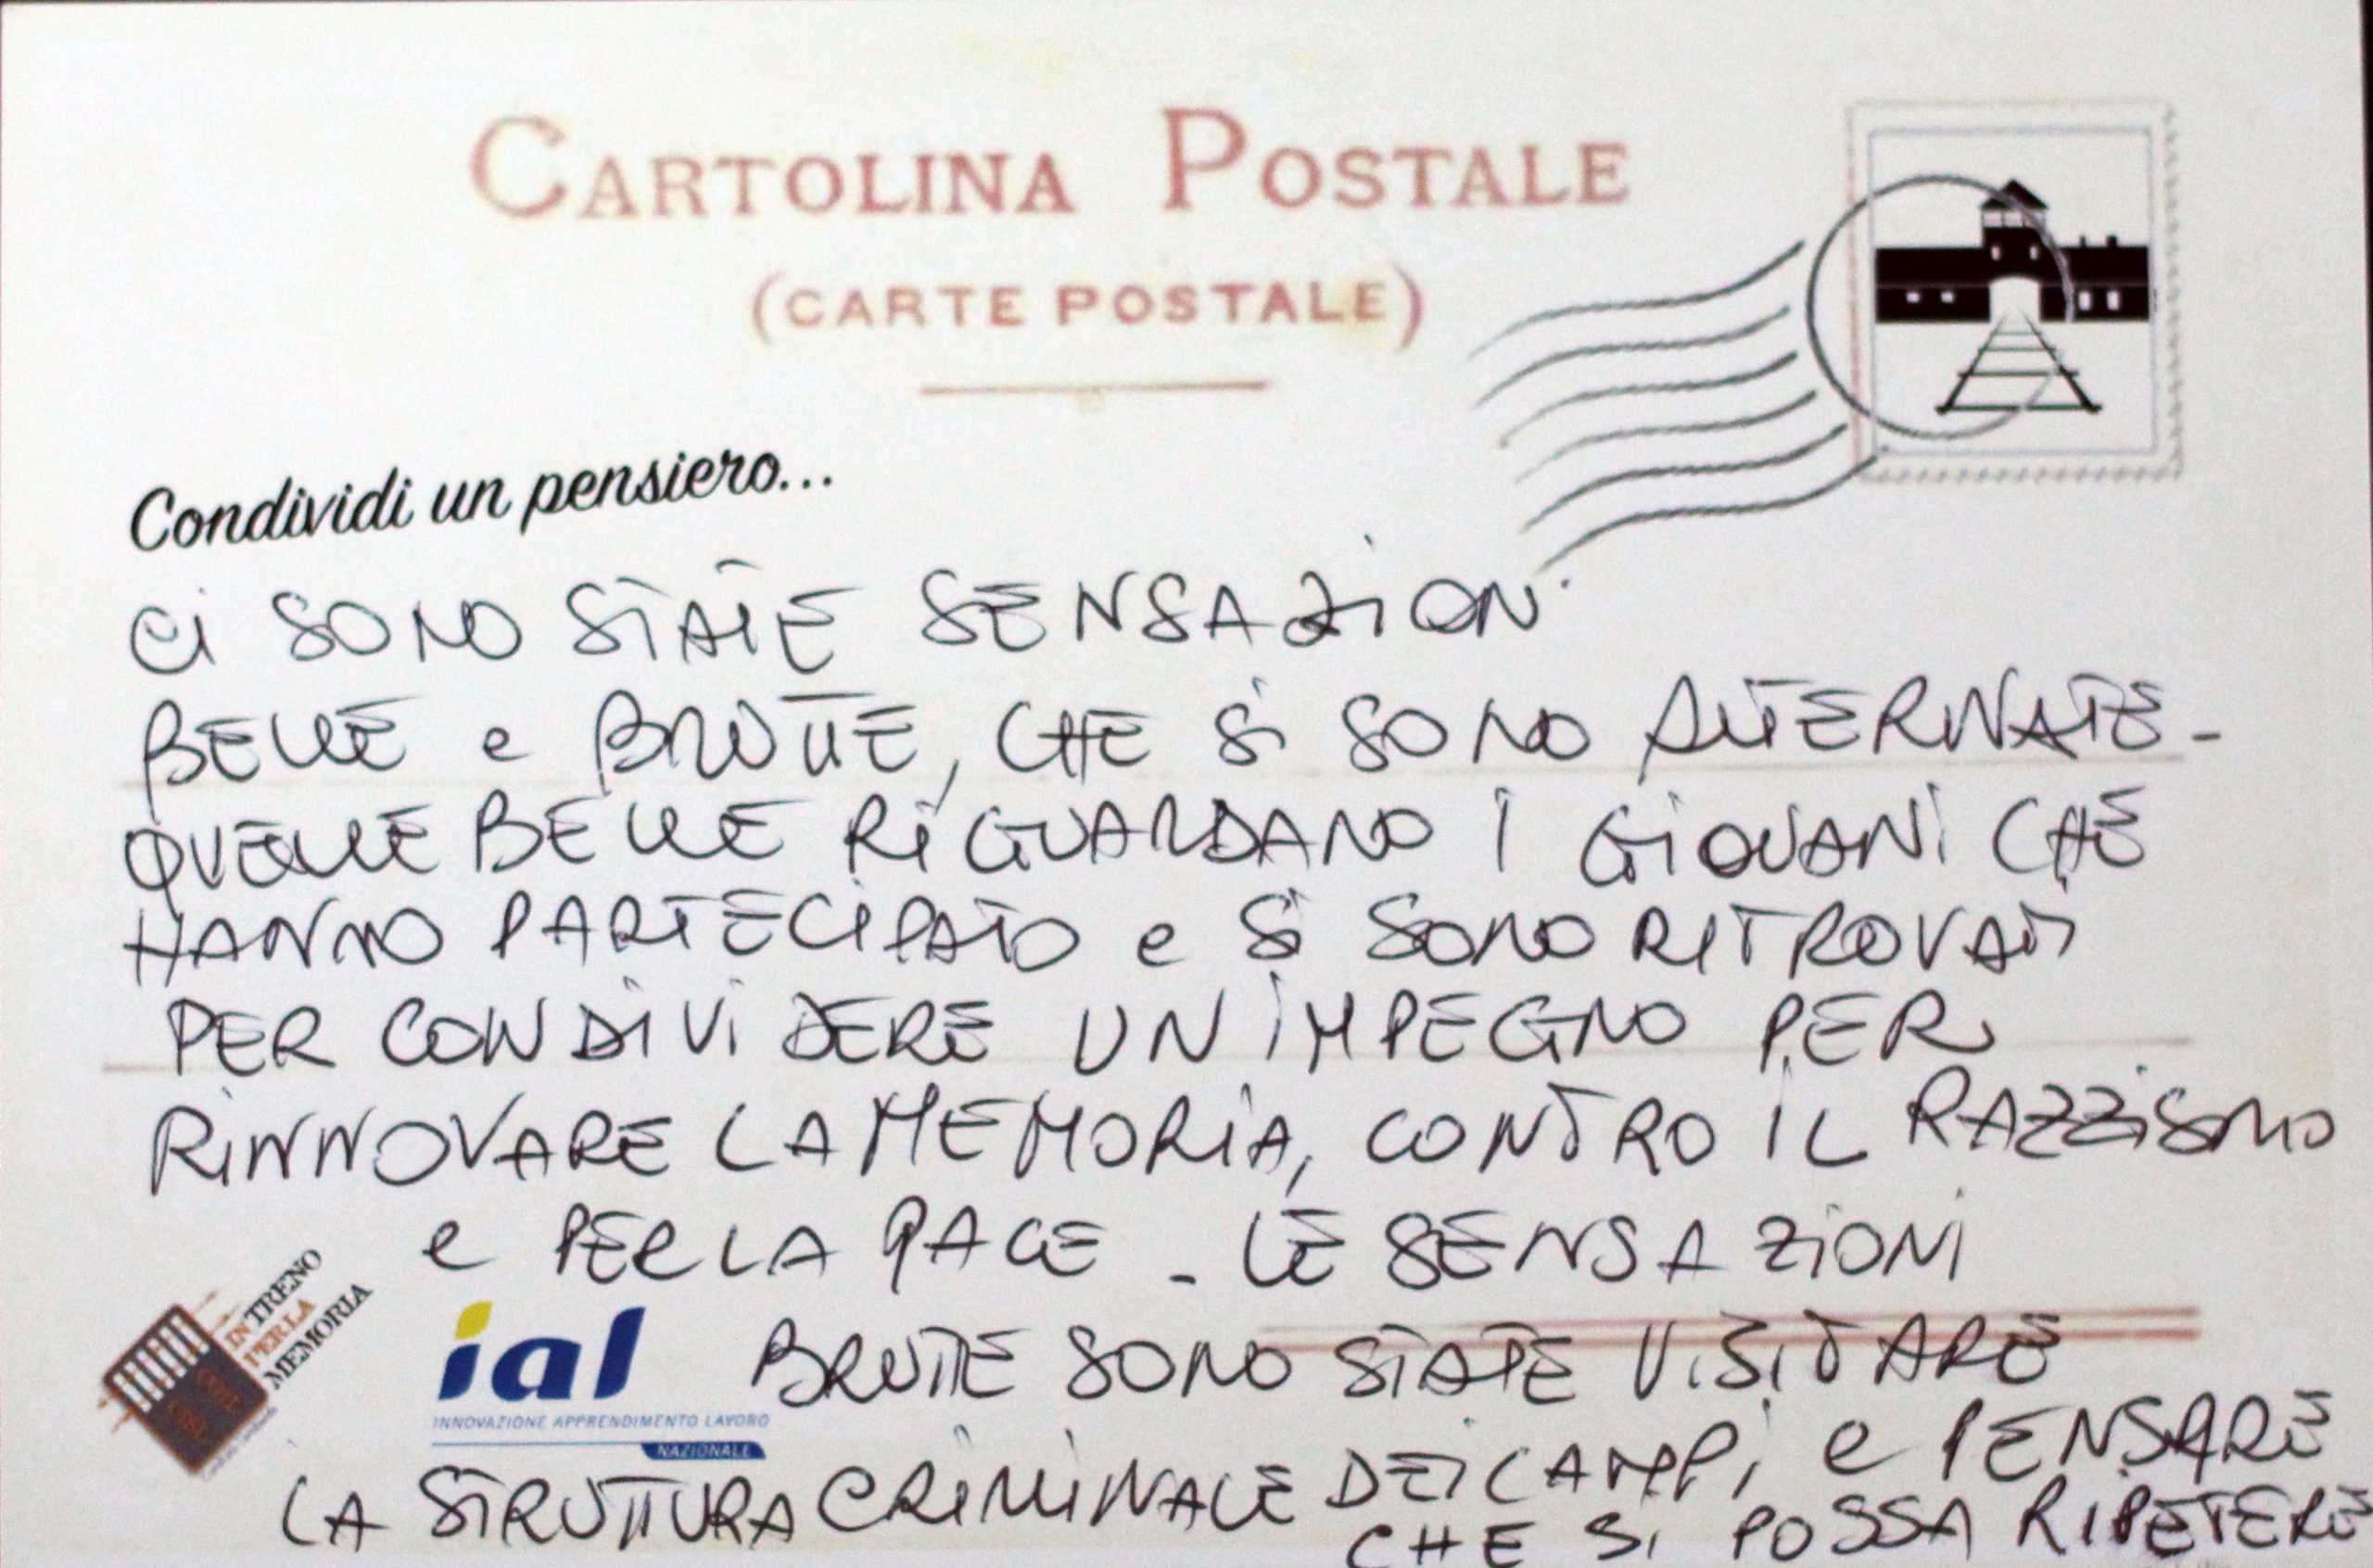 CARTOLINA POSTALE
(CARTE POSTALE)
Condividi un pensiero...
Ci SONO STATE SENSAZIONi
BELLE e BRUTTE, CHE Si SONO ALTERNATE -
QUELLE BELLE RiGUARDANO I GiOVANi CHE
HANNO PARTECiPATO e Si SONO RITROVATi
PER CONDiViDERE UN iMPEGNO PER
RiNNOVARE LA MEMORiA, CONTRO iL RAZZiSMO
e PER LA PACE - LE SENSAZiONi
BRUTTE SONO STATE ViSiTARE
LA STRUTTURA CRiMiNALE DEi CAMPi e PENSARE
CHE Si POSSA RiPETERE
IN TRENO
PER LA
MEMORIA
ial
INNOVAZIONE APPRENDIMENTO LAVORO
NAZIONALE